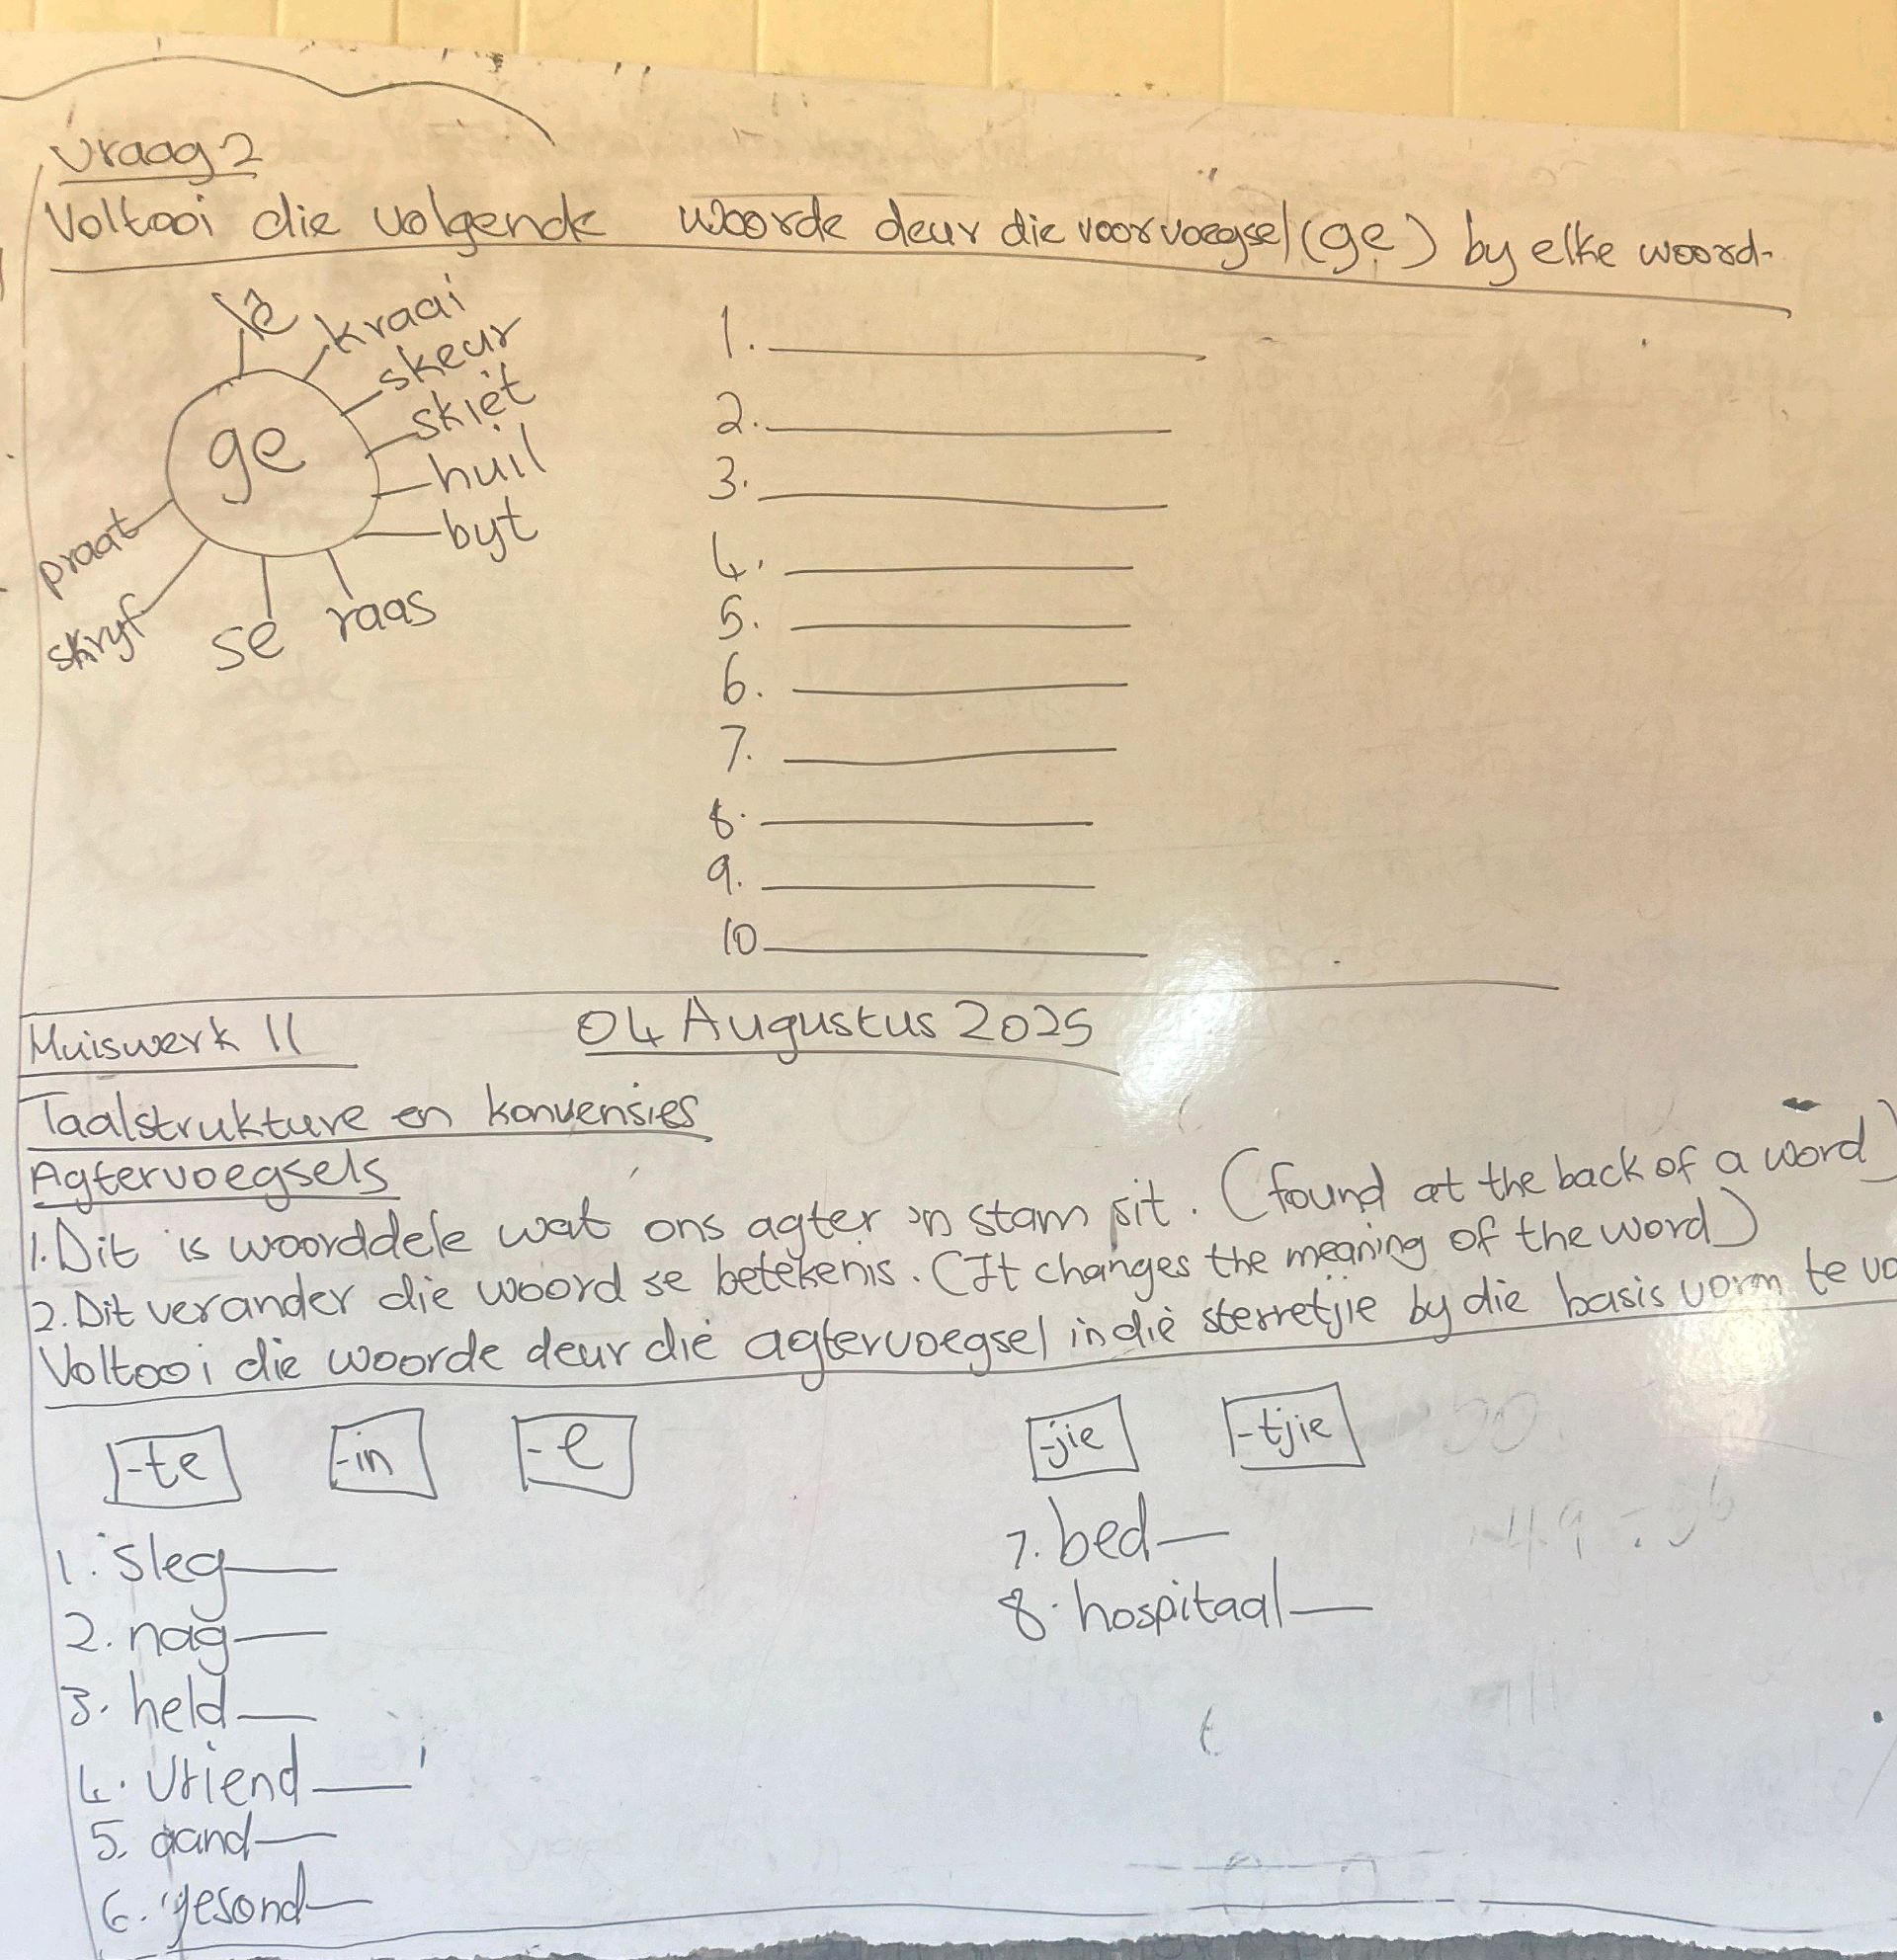 Vraag 2
Voltooi die volgende woorde deur die voorvoegsel (ge) by elke woord.
lê
kraai
skeur
skiet
huil
byt
raas
se
skryf
praat
ge
1.
2.
3.
4.
5.
6.
7.
8.
9.
10
Huiswerk 11
04 Augustus 2025
Taalstrukture en konvensies
Agtervoegsels
1. Dit is woorddele wat ons agter 'n stam sit. (found at the back of a word)
2. Dit verander die woord se betekenis. (It changes the meaning of the word)
Voltooi die woorde deur die agtervoegsel in die sterretjie by die basis vorm te vo
-te -in -e -jie -tjie
1. sleg
2. nag
3. held
4. vriend
5. aand
6. gesond
7. bed
8. hospitaal